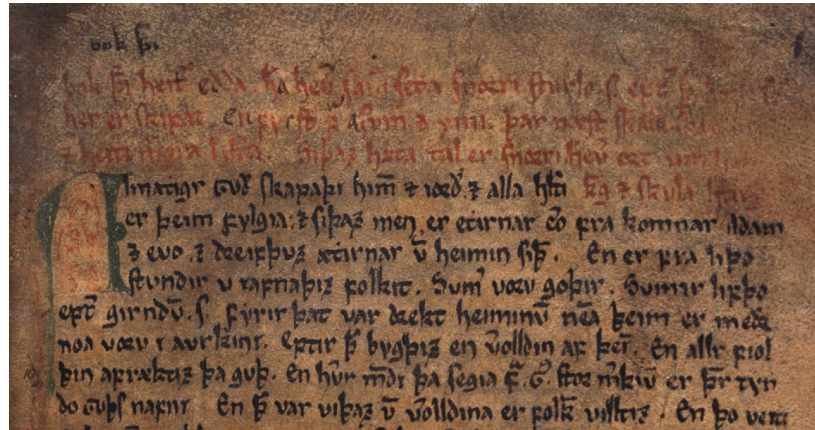 bok þ̄i
bok þ̄i heit͛ edda. h̄a hev͛ saman setta snorri sturlo. s. ept͛ þ̄
her er skipat. En fyrst f͛ asum ⁊ ymi. þar næst skalld
⁊ heiti m͛gra hluta. Siþaz hatta tal er snorri hev͛ ort um
Almatigr Guð skapaþi himin ⁊ iorð. ⁊ alla hlvti kg ⁊ skula hertuga
er þeim fylgia. ⁊ siþaz men er ettirnar ero fra komnar Adam
⁊ evo. ⁊ dreifþuz ættirnar v̄ heimin siþ̄. En er fra liþo
stundir v iafnaþiz folkit. Sum͛ voru goþir. Sumir lifþo
ept͛ girndū. s. fyrir þat var drekt heiminū nēa þeim er með
noa voru i aurkinni. Eptir þ̄ bygþiz en v͛olldin af þeī. En allr fiol
þin afræktiz þa guþ. En hv͛r m̄di þa segia f͛. G. stor m͛kiū er þr̄ tyn
do Guþs nafni. En þ̄ var viþaz v̄ v͛olldina er folk̄ villtiz. En þo veiti